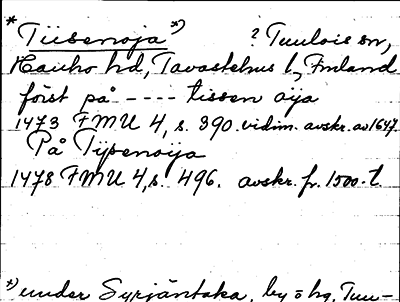 * Tiisenoja *) ? Tuulois sn,
Hauho hd, Tavastehus l, Finland
först på ---- tissen oija
1473 FMU 4, s. 390. vidim. avskr. av 1647.
På Tijsenoija
1478 FMU 4, s. 496. avskr. fr. 1500-t.
*) under Syrjäntaka, by ö hg, Tuu-